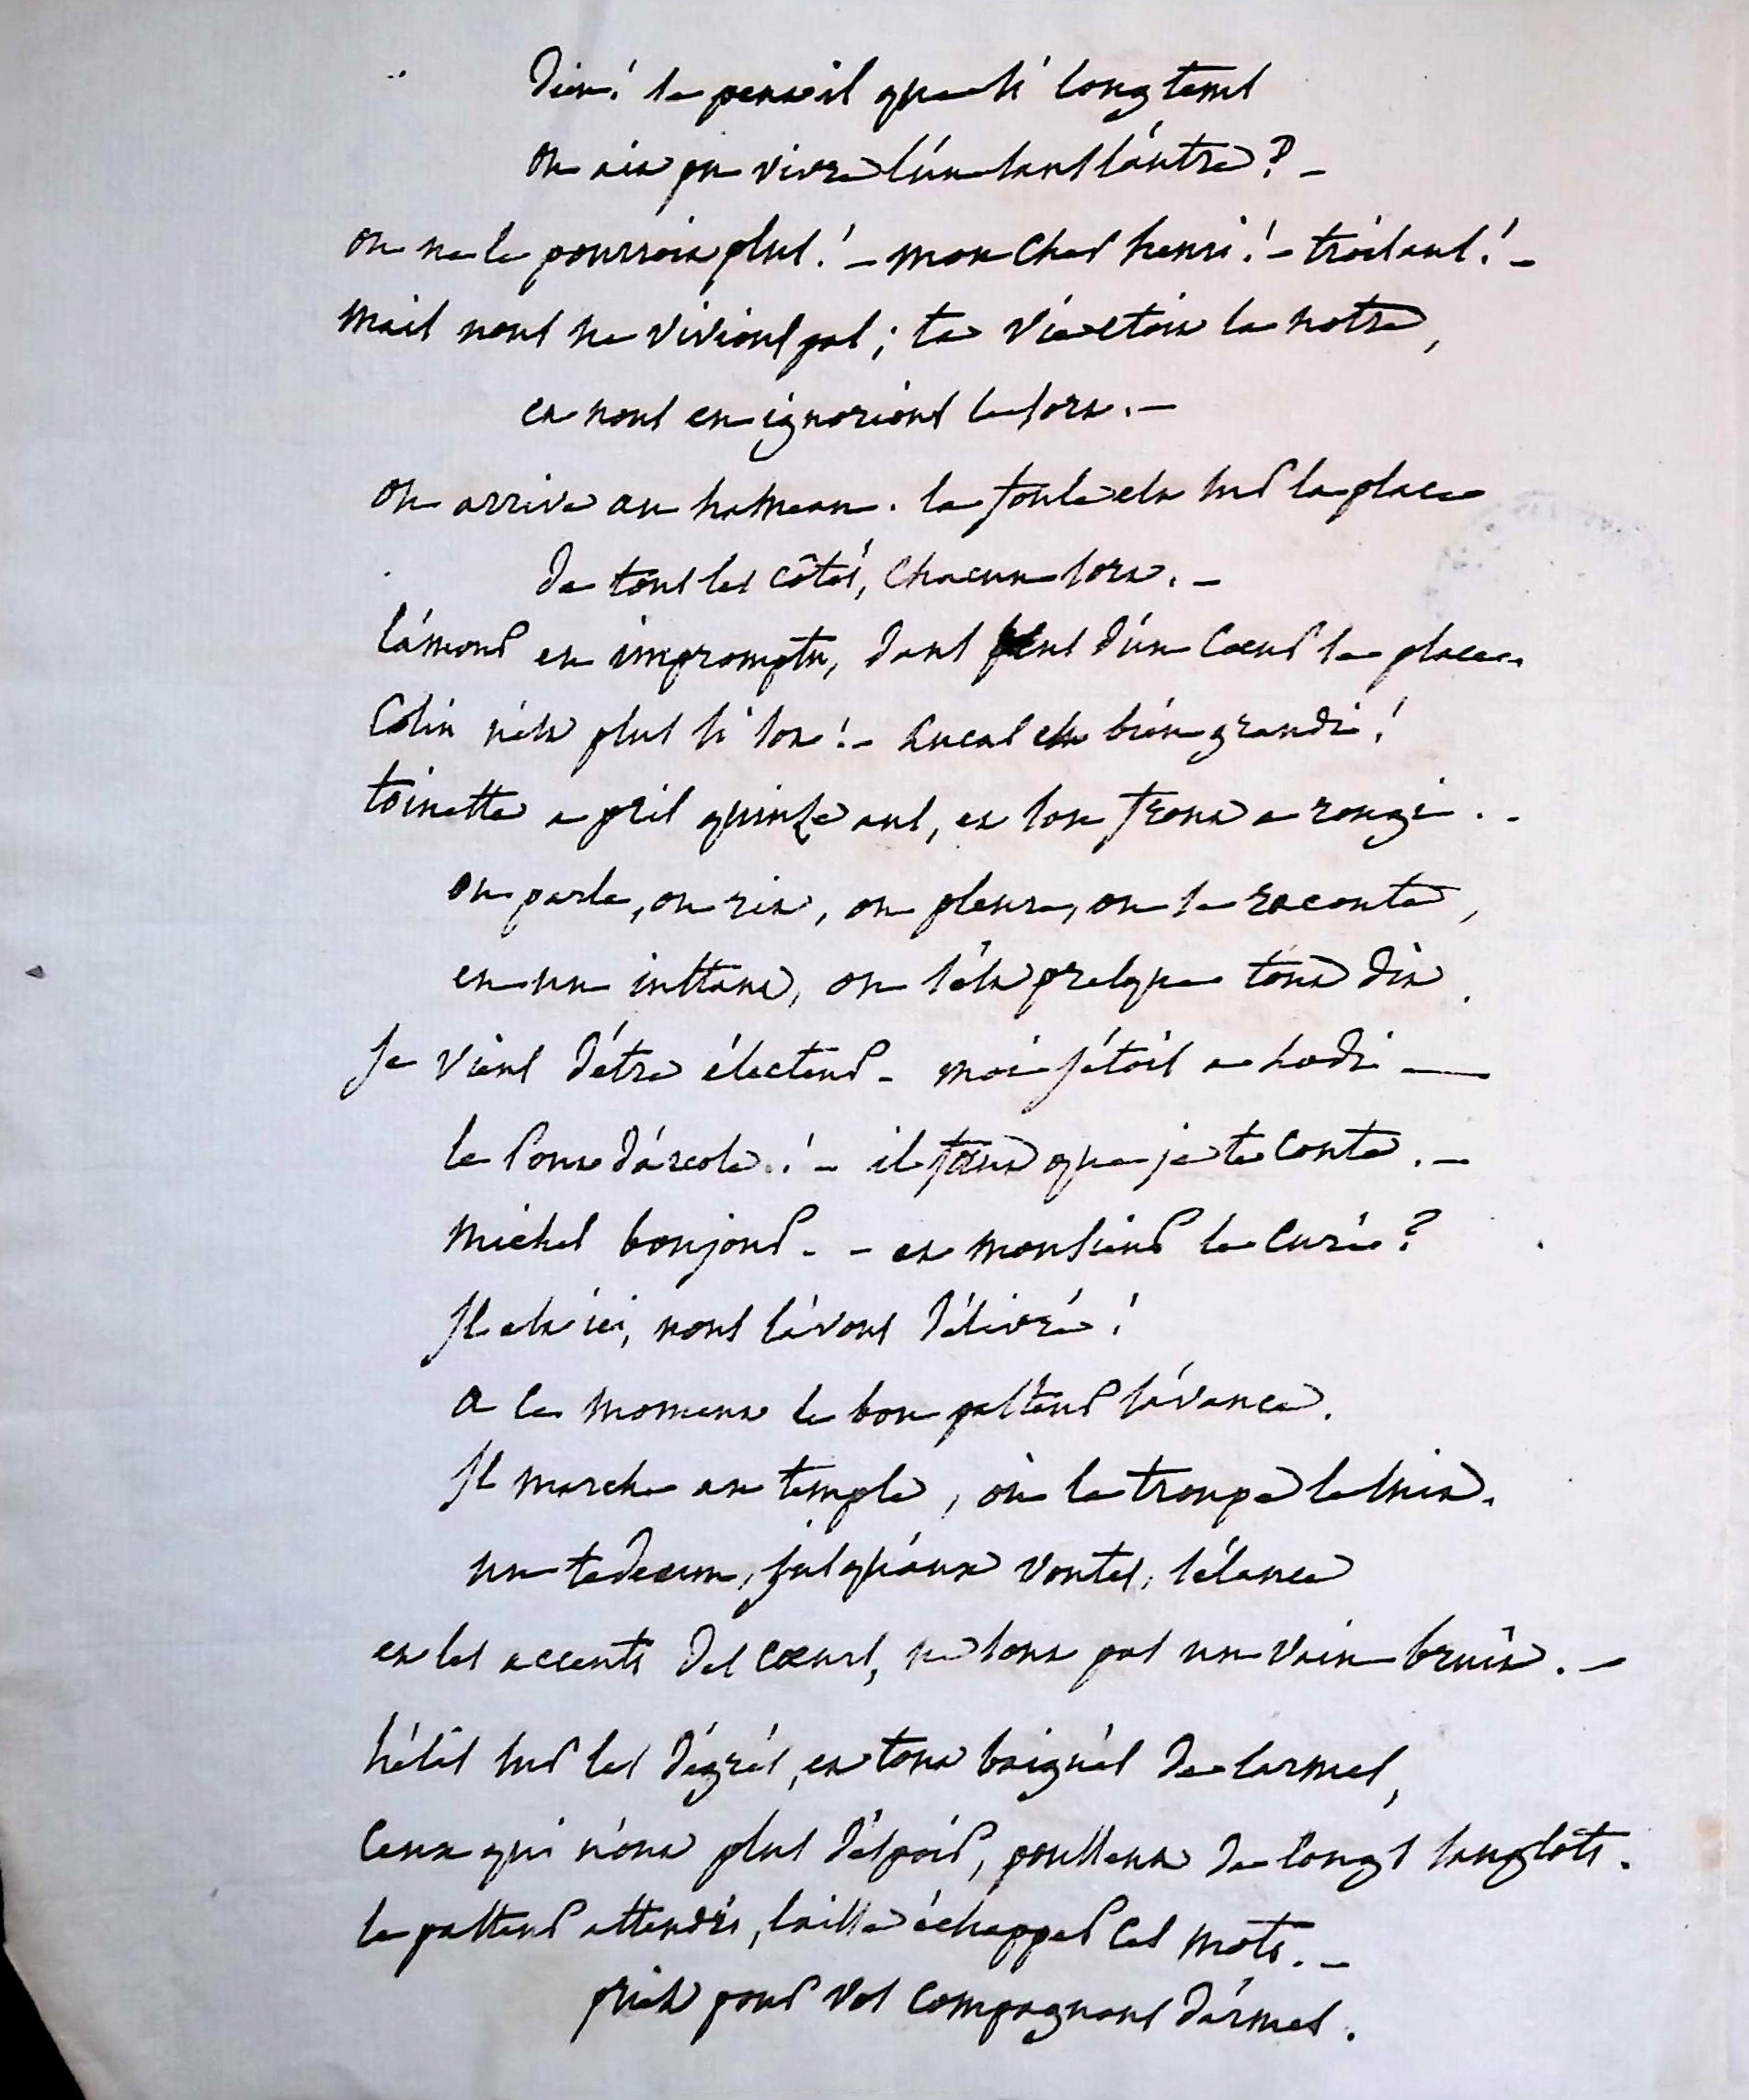 Dieu! se peut-il que si longtems
on ait pu vivre l'un sans l'autre? -
on ne le pourroit plus! - mon cher henri! - tristans! -
mais nous ne vivions pas; ta vie etoit la notre,
et nous en ignorions le sort. -
on arrive au hameau. la foule est sur la place
De tous les côtés, chacun sort. -
l'amour en impromptu, dans plus d'un coeur se place.
Colin n'est plus si sot! - Lucas est bien grandi!
toinette a pris quinze ans, et son front a rougi . -
on parle, on rit, on pleure, on se raconte,
en un instant, on s'est presque tout dit.
Je viens d'être électeur - moi j'étois a Lodi -
le Pont d'árcole..! - il faut que je te conte. -
Michel bonjour. - et monsieur le Curé?
Il est ici, nous l'avons délivré!
a ce moment le bon pasteur s'avance.
Il marche au temple, où la troupe le suit.
un tedeum, jusqu'aux voutes, s'élance
et les accents des coeurs, ne sont pas un vain bruit. -
hélas sur les dégrés, et tout baignés de larmes,
Ceux qui n'ont plus d'espoir, poussent de longs sanglots.
le pasteur attendri, laisse échapper ces mots. -
priés pour vos compagnons d'armes.